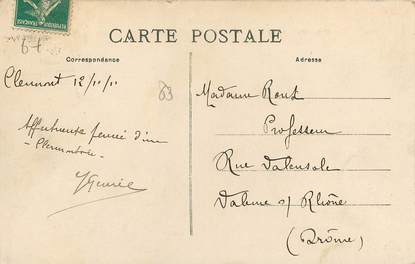 CARTE POSTALE
Correspondance
Adresse
Clermont 12/11/11
83
Madame Roux
Professeur
Affectueuse pensée d'une
Rue Valensole
Valence s/ Rhône
(Drôme)